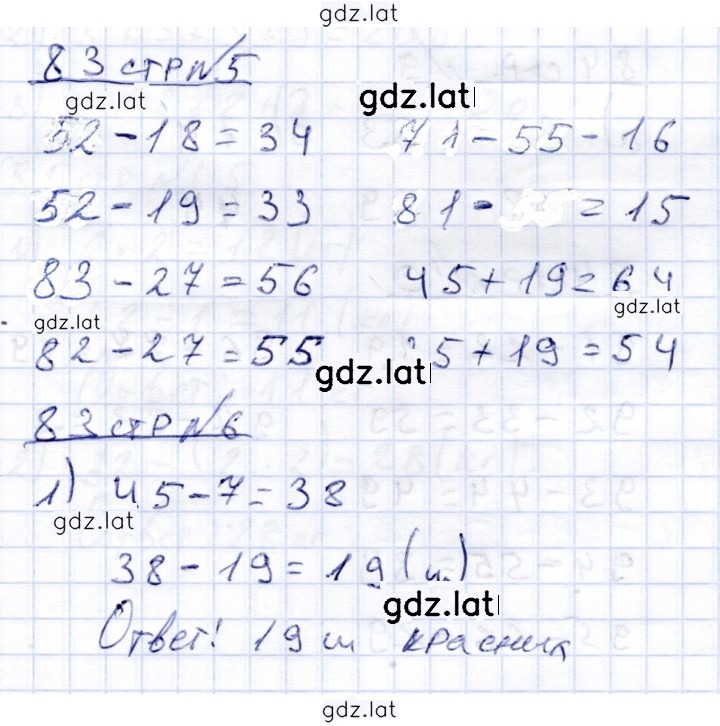 gdz.lat
83 стр №5
gdz.lat
gdz.lat
52-18=34 71-55-16
52-19=33 81- =15
83-27=56 45+19=64
gdz.lat
gdz.lat
82-27=55 5+19=54
gdz.lat
83 стр №6
1) 45-7=38
gdz.lat
38-19=19 (ш.)
gdz.lat
Ответ! 19 ш красних
gdz.lat